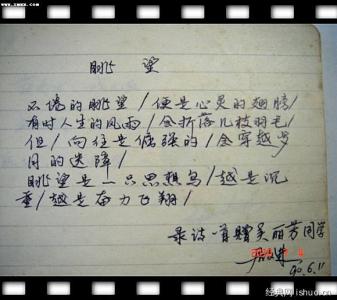 眺 望
不倦的眺望/便是心灵的翅膀/
有时人生的风雨/会折落几枝羽毛/
但/向往是倔强的/会穿越岁
月的迷障/
眺望是一只思想鸟/越是沉
重/越是奋力飞翔/
录诗一首赠吴丽芳同学
90.6.11
经典网 ishuo.cn